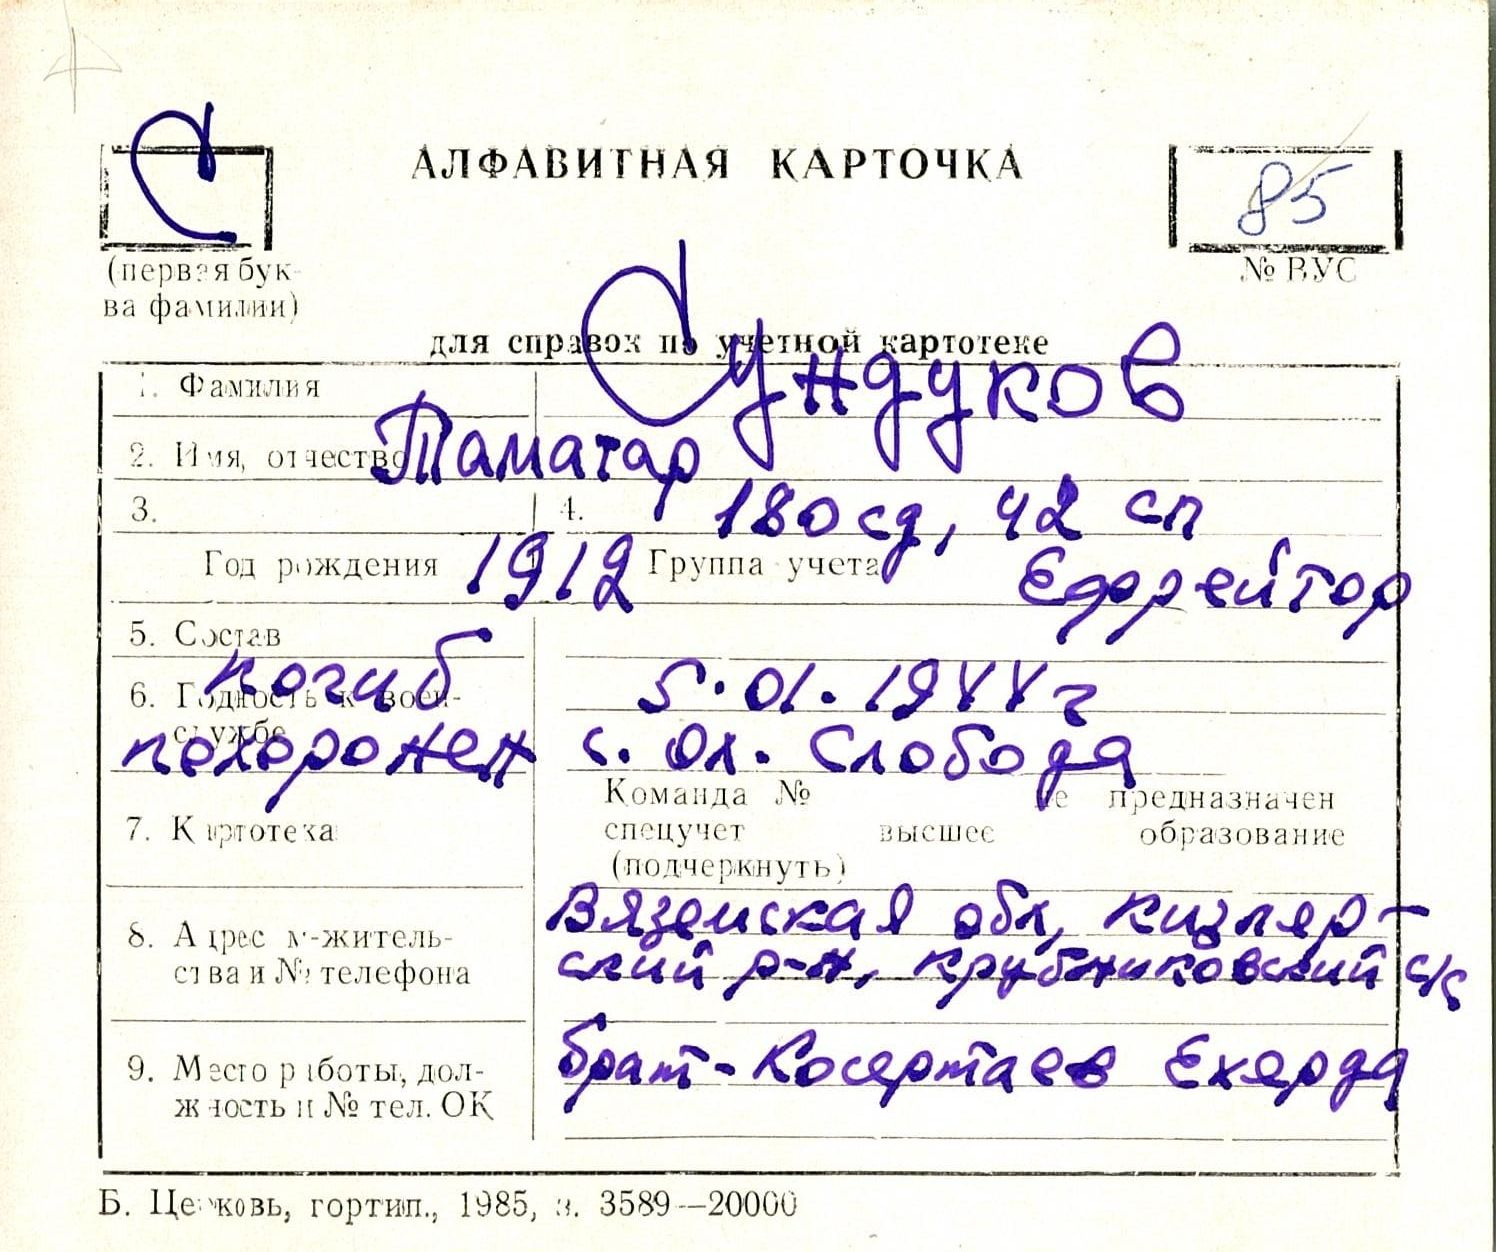 С
АЛФАВИТНАЯ КАРТОЧКА
85
(первая бук-
ва фамилии)
№ ВУС
для справок по учетной картотеке
1. Фамилия
Сундуков
2. Имя, отчество
Таматар
3.
4.
180 сд, 42 сп
Год рождения
1912
Группа учета
Ефрейтор
5. Состав
6. Годность к воен-
службе
погиб
5.01.1944 г
похоронен
с. Ол. Слобода
7. Картотека
Команда № не предназначен
спецучет высшее образование
(подчеркнуть)
8. Адрес м-житель-
ства и № телефона
Вяземская обл, кизляр-
ский р-н, крубниковский с/с
9. Место работы, дол-
жность и № тел. ОК
брат - Косертаев Ехярда
Б. Церковь, гортип., 1985, з. 3589—20000